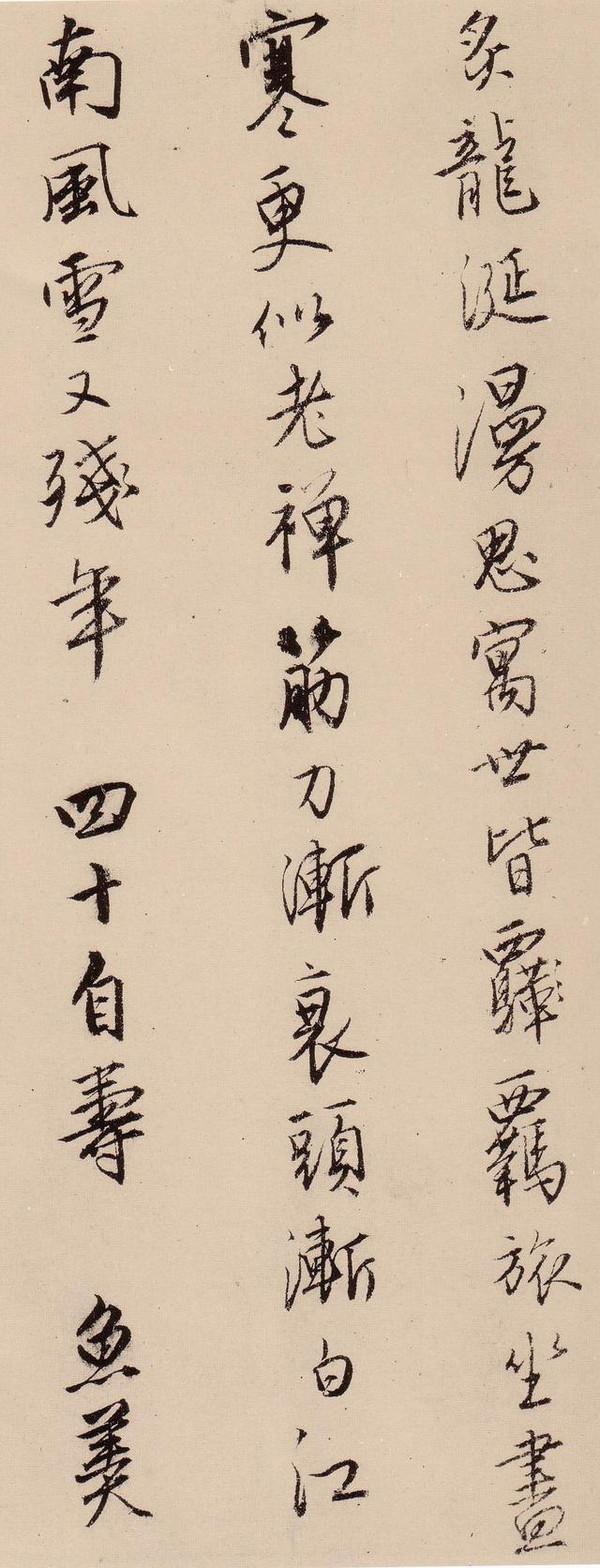 炙龍涎漫思寓世皆羈旅坐盡
寒更似老禅筋力漸衰頭漸白江
南風雪又殘年 四十自壽 魚羹